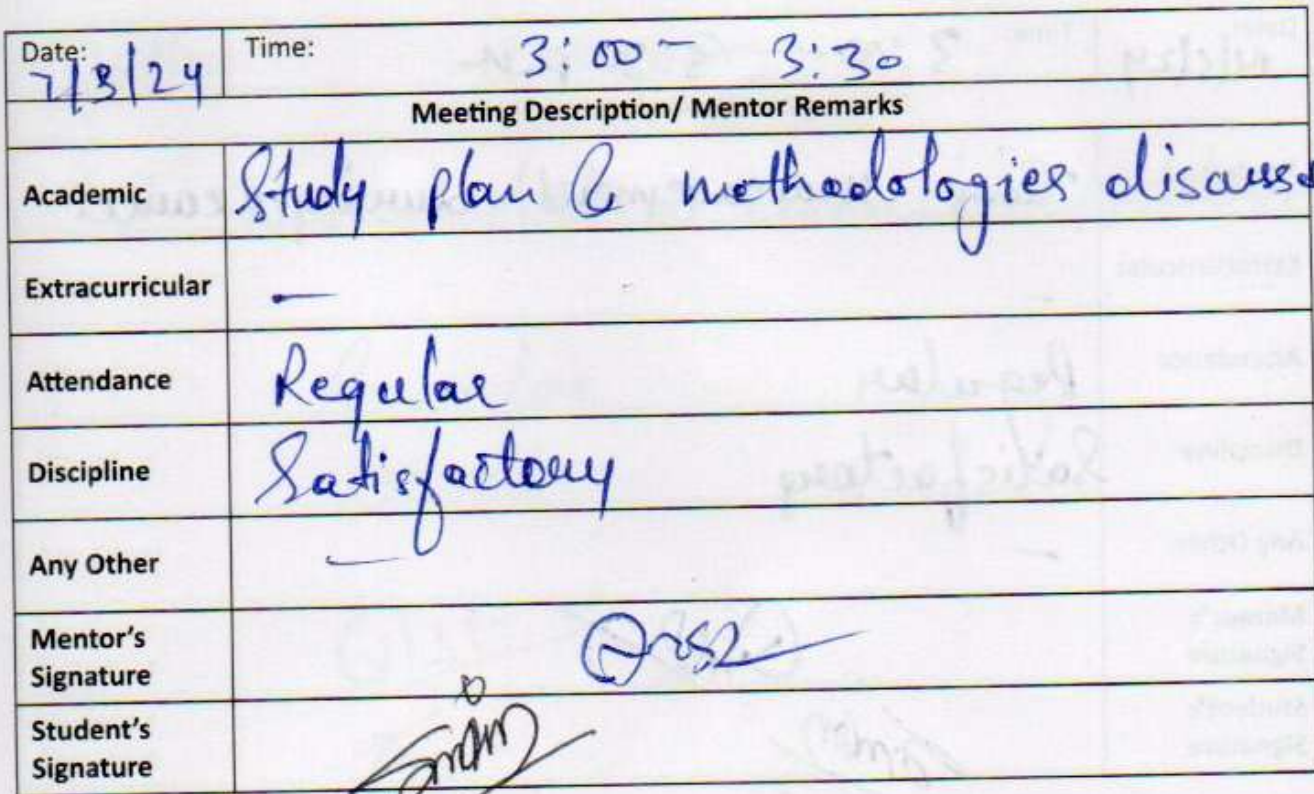 Date: 7/3/24 Time: 3:00 - 3:30
Meeting Description/ Mentor Remarks
Academic Study plan & methodologies discussed
Extracurricular —
Attendance Regular
Discipline Satisfactory
Any Other —
Mentor's
Signature
Student's
Signature